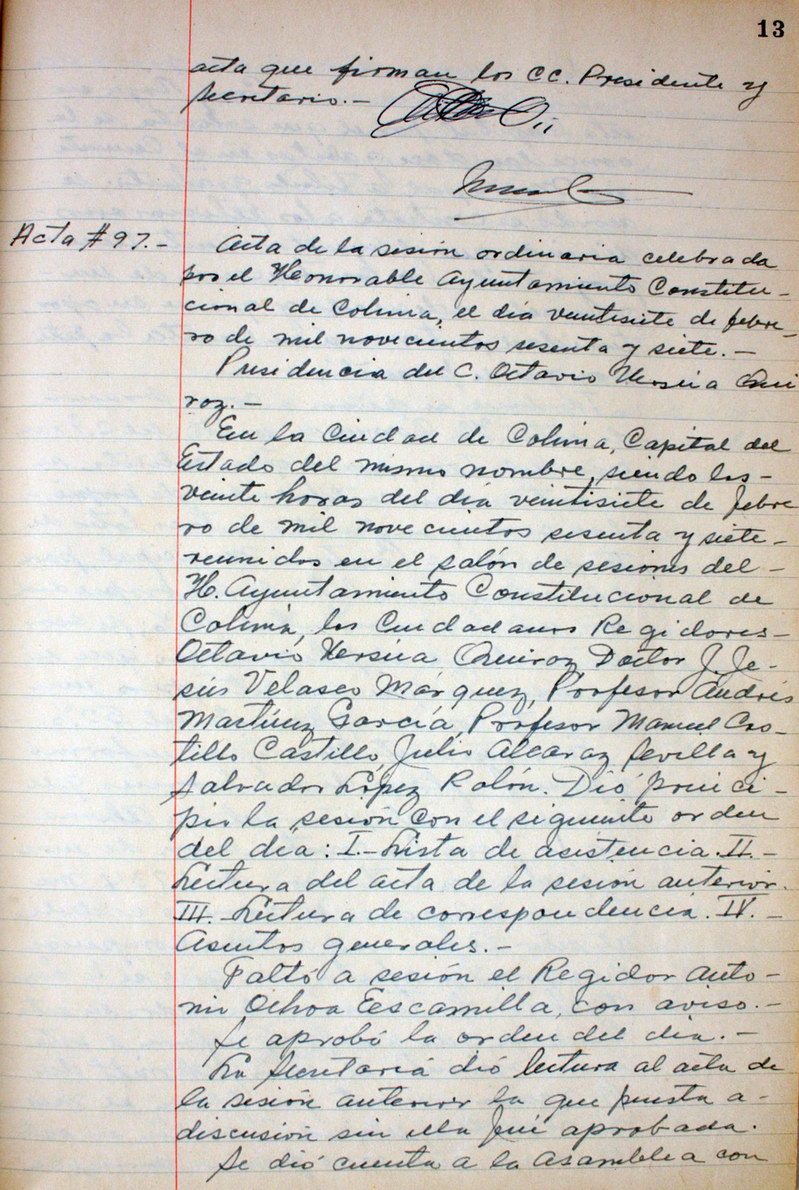 13
acta que firman los CC. Presidente y
Secretario.-
Acta # 97.-
Acta de la sesión ordinaria celebrada
por el Honorable Ayuntamiento Constitu-
cional de Colima, el día veintisiete de febre-
ro de mil novecientos sesenta y siete.-
Presidencia del C. Octavio Ursúa Qui
roz.-
En la Ciudad de Colima, Capital del
Estado del mismo nombre, siendo las-
veinte horas del día veintisiete de febre
ro de mil novecientos sesenta y siete-
reunidos en el salón de sesiones del-
H. Ayuntamiento Constitucional de
Colima, los Ciudadanos Regidores-
Octavio Ursúa Quiroz, Doctor J. Je-
sús Velasco Márquez, Profesor Andrés
Martínez García, Profesor Manuel Cas-
tillo Castillo, Julio Alcaraz Sevilla y
Salvador López Rolón. Dió princi-
pio la sesión con el siguiente orden
del día: I.- Lista de asistencia. II.-
Lectura del acta de la sesión anterior.
III.- Lectura de correspondencia. IV.-
Asuntos generales.-
Faltó a sesión el Regidor Anto-
nio Ochoa Escamilla, con aviso.-
Se aprobó la orden del día.-
La Secretaría dió lectura al acta de
la sesión anterior la que puesta a-
discusión sin ella fué aprobada.
Se dió cuenta a la Asamblea con